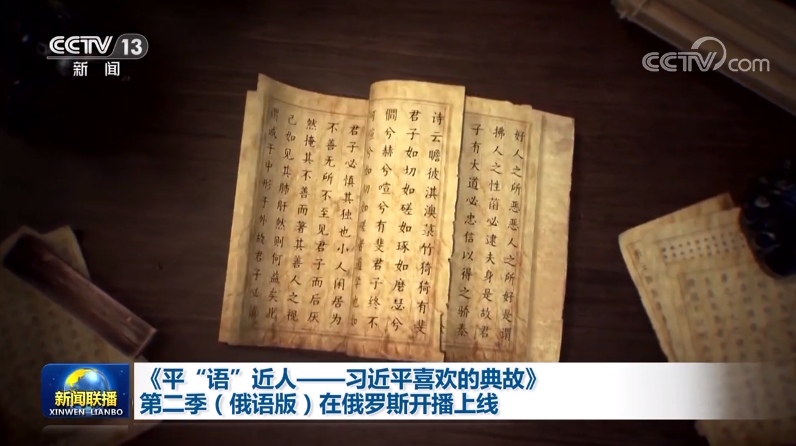 CCTV 13
新闻
CCTV.com
好人之所恶恶人之所好是谓
拂人之性菑必逮夫身是故君
子有大道必忠信以得之骄泰
诗云瞻彼淇澳菉竹猗猗有斐
君子如切如磋如琢如磨瑟兮
僩兮赫兮喧兮有斐君子终不
君子必慎其独也小人闲居为
不善无所不至见君子而后厌
然掩其不善而著其善人之视
己如见其肺肝然则何益矣此
谓诚于中形于外故君子必
新闻联播
XINWEN LIANBO
《平“语”近人——习近平喜欢的典故》
第二季（俄语版）在俄罗斯开播上线